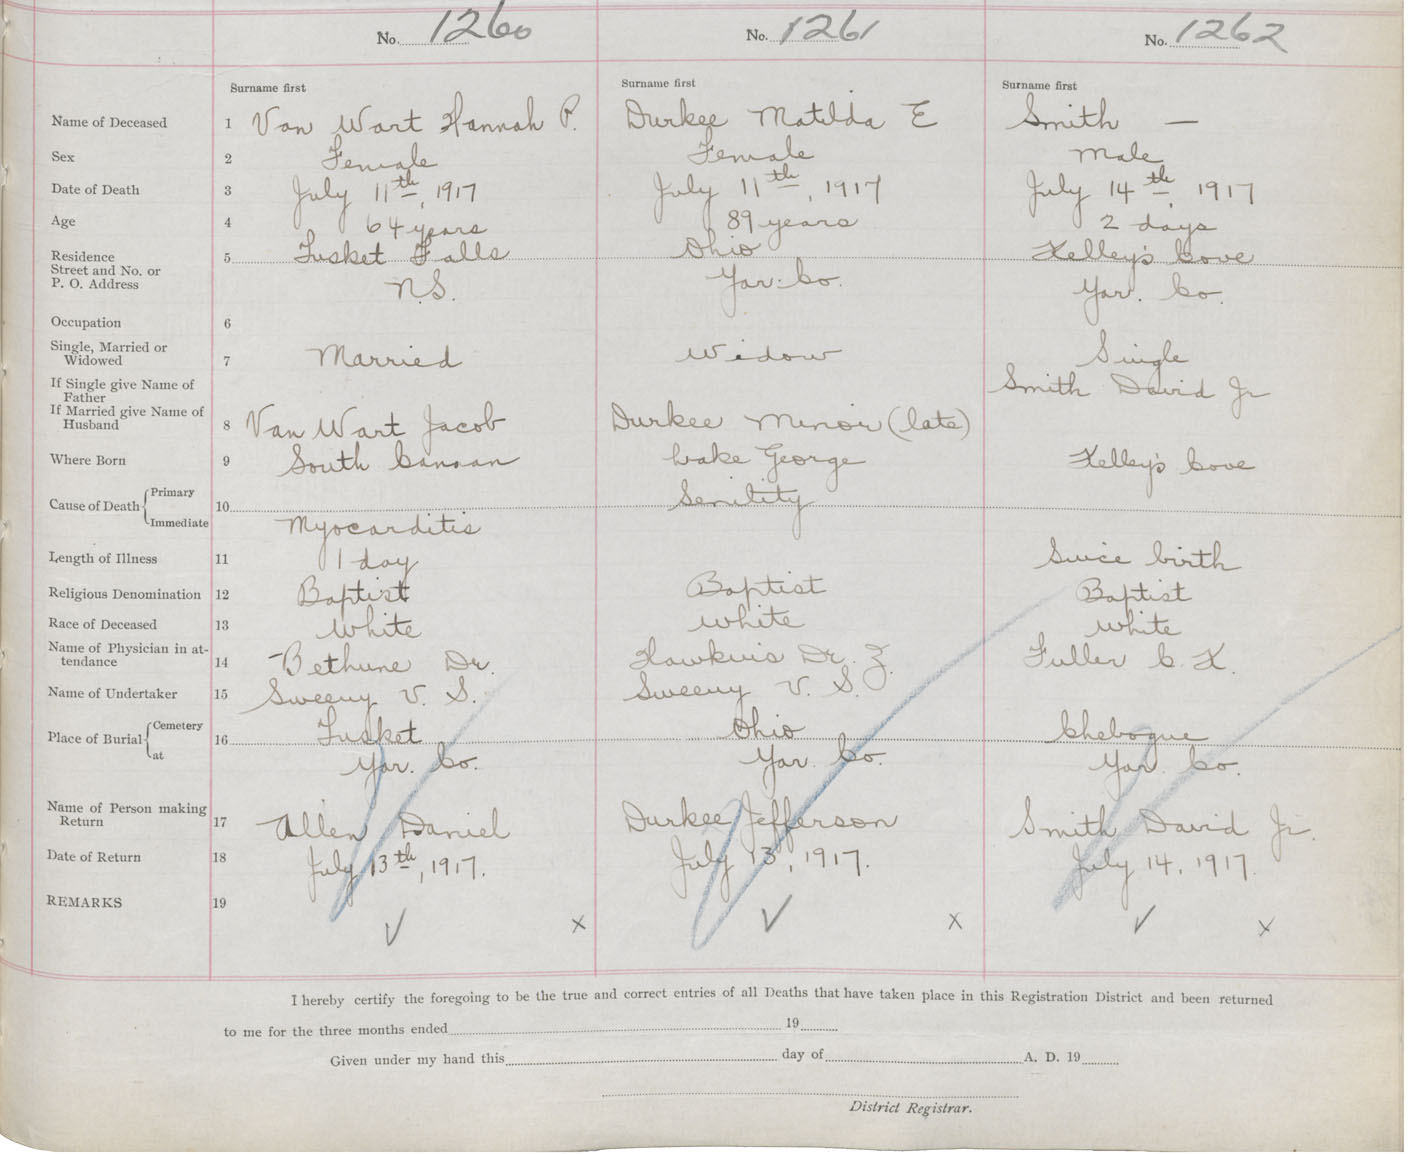 No. 1260 No. 1261 No. 1262
Surname first Surname first Surname first
Name of Deceased 1 Van Wart Hannah P. Durkee Matilda E Smith —
Sex 2 Female Female Male
Date of Death 3 July 11th, 1917 July 11th, 1917 July 14th, 1917
Age 4 64 years 89 years 2 days
Residence 5 Tusket Falls Ohio Kelley's Cove
Street and No. or
P. O. Address N.S. Yar. Co. Yar. Co.
Occupation 6
Single, Married or
Widowed 7 Married Widow Single
If Single give Name of
Father Smith David Jr
If Married give Name of
Husband 8 Van Wart Jacob Durkee Minor (late)
Where Born 9 South Canaan Lake George Kelley's Cove
Cause of Death Primary 10 Senility
Immediate Myocarditis
Length of Illness 11 1 day Since birth
Religious Denomination 12 Baptist Baptist Baptist
Race of Deceased 13 White White White
Name of Physician in at-
tendance 14 Bethune Dr. Hawkins Dr. Z. Fuller C. K.
Name of Undertaker 15 Sweeny V. S. Sweeny V. S.
Place of Burial Cemetery 16 Tusket Ohio Chebogue
at Yar. Co. Yar. Co. Yar. Co.
Name of Person making
Return 17 Allen Daniel Durkee Jefferson Smith David Jr.
Date of Return 18 July 13th, 1917. July 13, 1917. July 14, 1917.
REMARKS 19 ✓ x ✓ x ✓ x
I hereby certify the foregoing to be the true and correct entries of all Deaths that have taken place in this Registration District and been returned
to me for the three months ended 19
Given under my hand this day of A. D. 19
District Registrar.